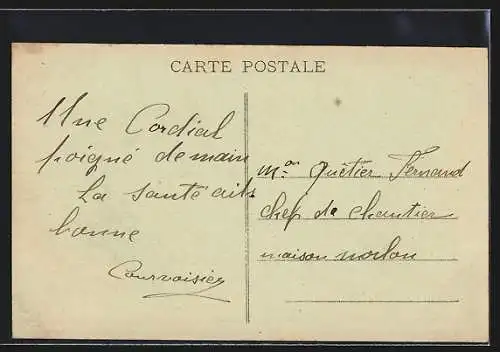 CARTE POSTALE
Une Cordial
poigné de main
La santé ait
bonne
Courvoisier
Mon Quêtier Fernand
chef de chantier
maison